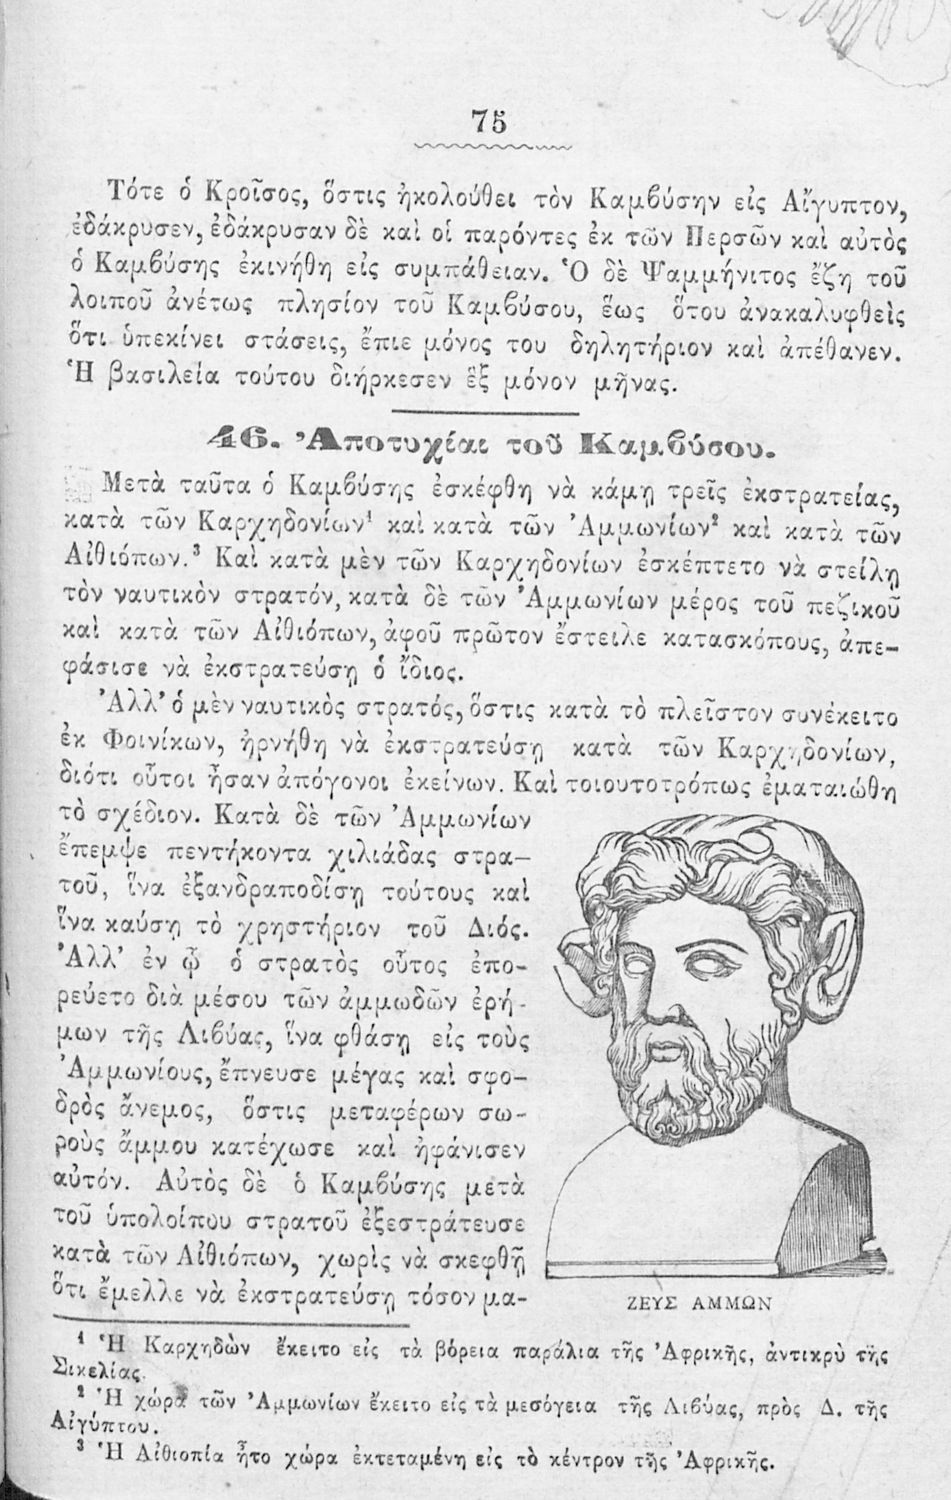 75
Τότε ὁ Κροῖσος, ὅστις ἠκολούθει τὸν Καμβύσην εἰς Αἴγυπτον,
ἐδάκρυσεν, ἐδάκρυσαν δὲ καὶ οἱ παρόντες ἐκ τῶν Περσῶν καὶ αὐτὸς
ὁ Καμβύσης ἐκινήθη εἰς συμπάθειαν. Ὁ δὲ Ψαμμήνιτος ἔζη τοῦ
λοιποῦ ἀνέτως πλησίον τοῦ Καμβύσου, ἕως ὅτου ἀνακαλυφθεὶς
ὅτι ὑπεκίνει στάσεις, ἔπιε μόνος του δηλητήριον καὶ ἀπέθανεν.
Ἡ βασιλεία τούτου διήρκεσεν ἓξ μόνον μῆνας.
46. Ἀποτυχίαι τοῦ Καμβύσου.
Μετὰ ταῦτα ὁ Καμβύσης ἐσκέφθη νὰ κάμῃ τρεῖς ἐκστρατείας,
κατὰ τῶν Καρχηδονίων¹ καὶ κατὰ τῶν Ἀμμωνίων² καὶ κατὰ τῶν
Αἰθιόπων.³ Καὶ κατὰ μὲν τῶν Καρχηδονίων ἐσκέπτετο νὰ στείλῃ
τὸν ναυτικὸν στρατόν, κατὰ δὲ τῶν Ἀμμωνίων μέρος τοῦ πεζικοῦ
καὶ κατὰ τῶν Αἰθιόπων, ἀφοῦ πρῶτον ἔστειλε κατασκόπους, ἀπε-
φάσισε νὰ ἐκστρατεύσῃ ὁ ἴδιος.
Ἀλλ' ὁ μὲν ναυτικὸς στρατός, ὅστις κατὰ τὸ πλεῖστον συνέκειτο
ἐκ Φοινίκων, ἠρνήθη νὰ ἐκστρατεύσῃ κατὰ τῶν Καρχηδονίων,
διότι οὗτοι ἦσαν ἀπόγονοι ἐκείνων. Καὶ τοιουτοτρόπως ἐματαιώθη
τὸ σχέδιον. Κατὰ δὲ τῶν Ἀμμωνίων
ἔπεμψε πεντήκοντα χιλιάδας στρα-
τοῦ, ἵνα ἐξανδραποδίσῃ τούτους καὶ
ἵνα καύσῃ τὸ χρηστήριον τοῦ Διός.
Ἀλλ' ἐν ᾧ ὁ στρατὸς οὗτος ἐπο-
ρεύετο διὰ μέσου τῶν ἀμμωδῶν ἐρή-
μων τῆς Λιβύας, ἵνα φθάσῃ εἰς τοὺς
Ἀμμωνίους, ἔπνευσε μέγας καὶ σφο-
δρὸς ἄνεμος, ὅστις μεταφέρων σω-
ροὺς ἄμμου κατέχωσε καὶ ἠφάνισεν
αὐτόν. Αὐτὸς δὲ ὁ Καμβύσης μετὰ
τοῦ ὑπολοίπου στρατοῦ ἐξεστράτευσε
κατὰ τῶν Αἰθιόπων, χωρὶς νὰ σκεφθῇ
ὅτι ἔμελλε νὰ ἐκστρατεύσῃ τόσον μα-
ΖΕΥΣ ΑΜΜΩΝ
¹ Ἡ Καρχηδὼν ἔκειτο εἰς τὰ βόρεια παράλια τῆς Ἀφρικῆς, ἀντικρὺ τῆς
Σικελίας.
² Ἡ χώρα τῶν Ἀμμωνίων ἔκειτο εἰς τὰ μεσόγεια τῆς Λιβύας, πρὸς Δ. τῆς
Αἰγύπτου.
³ Ἡ Αἰθιοπία ἦτο χώρα ἐκτεταμένη εἰς τὸ κέντρον τῆς Ἀφρικῆς.